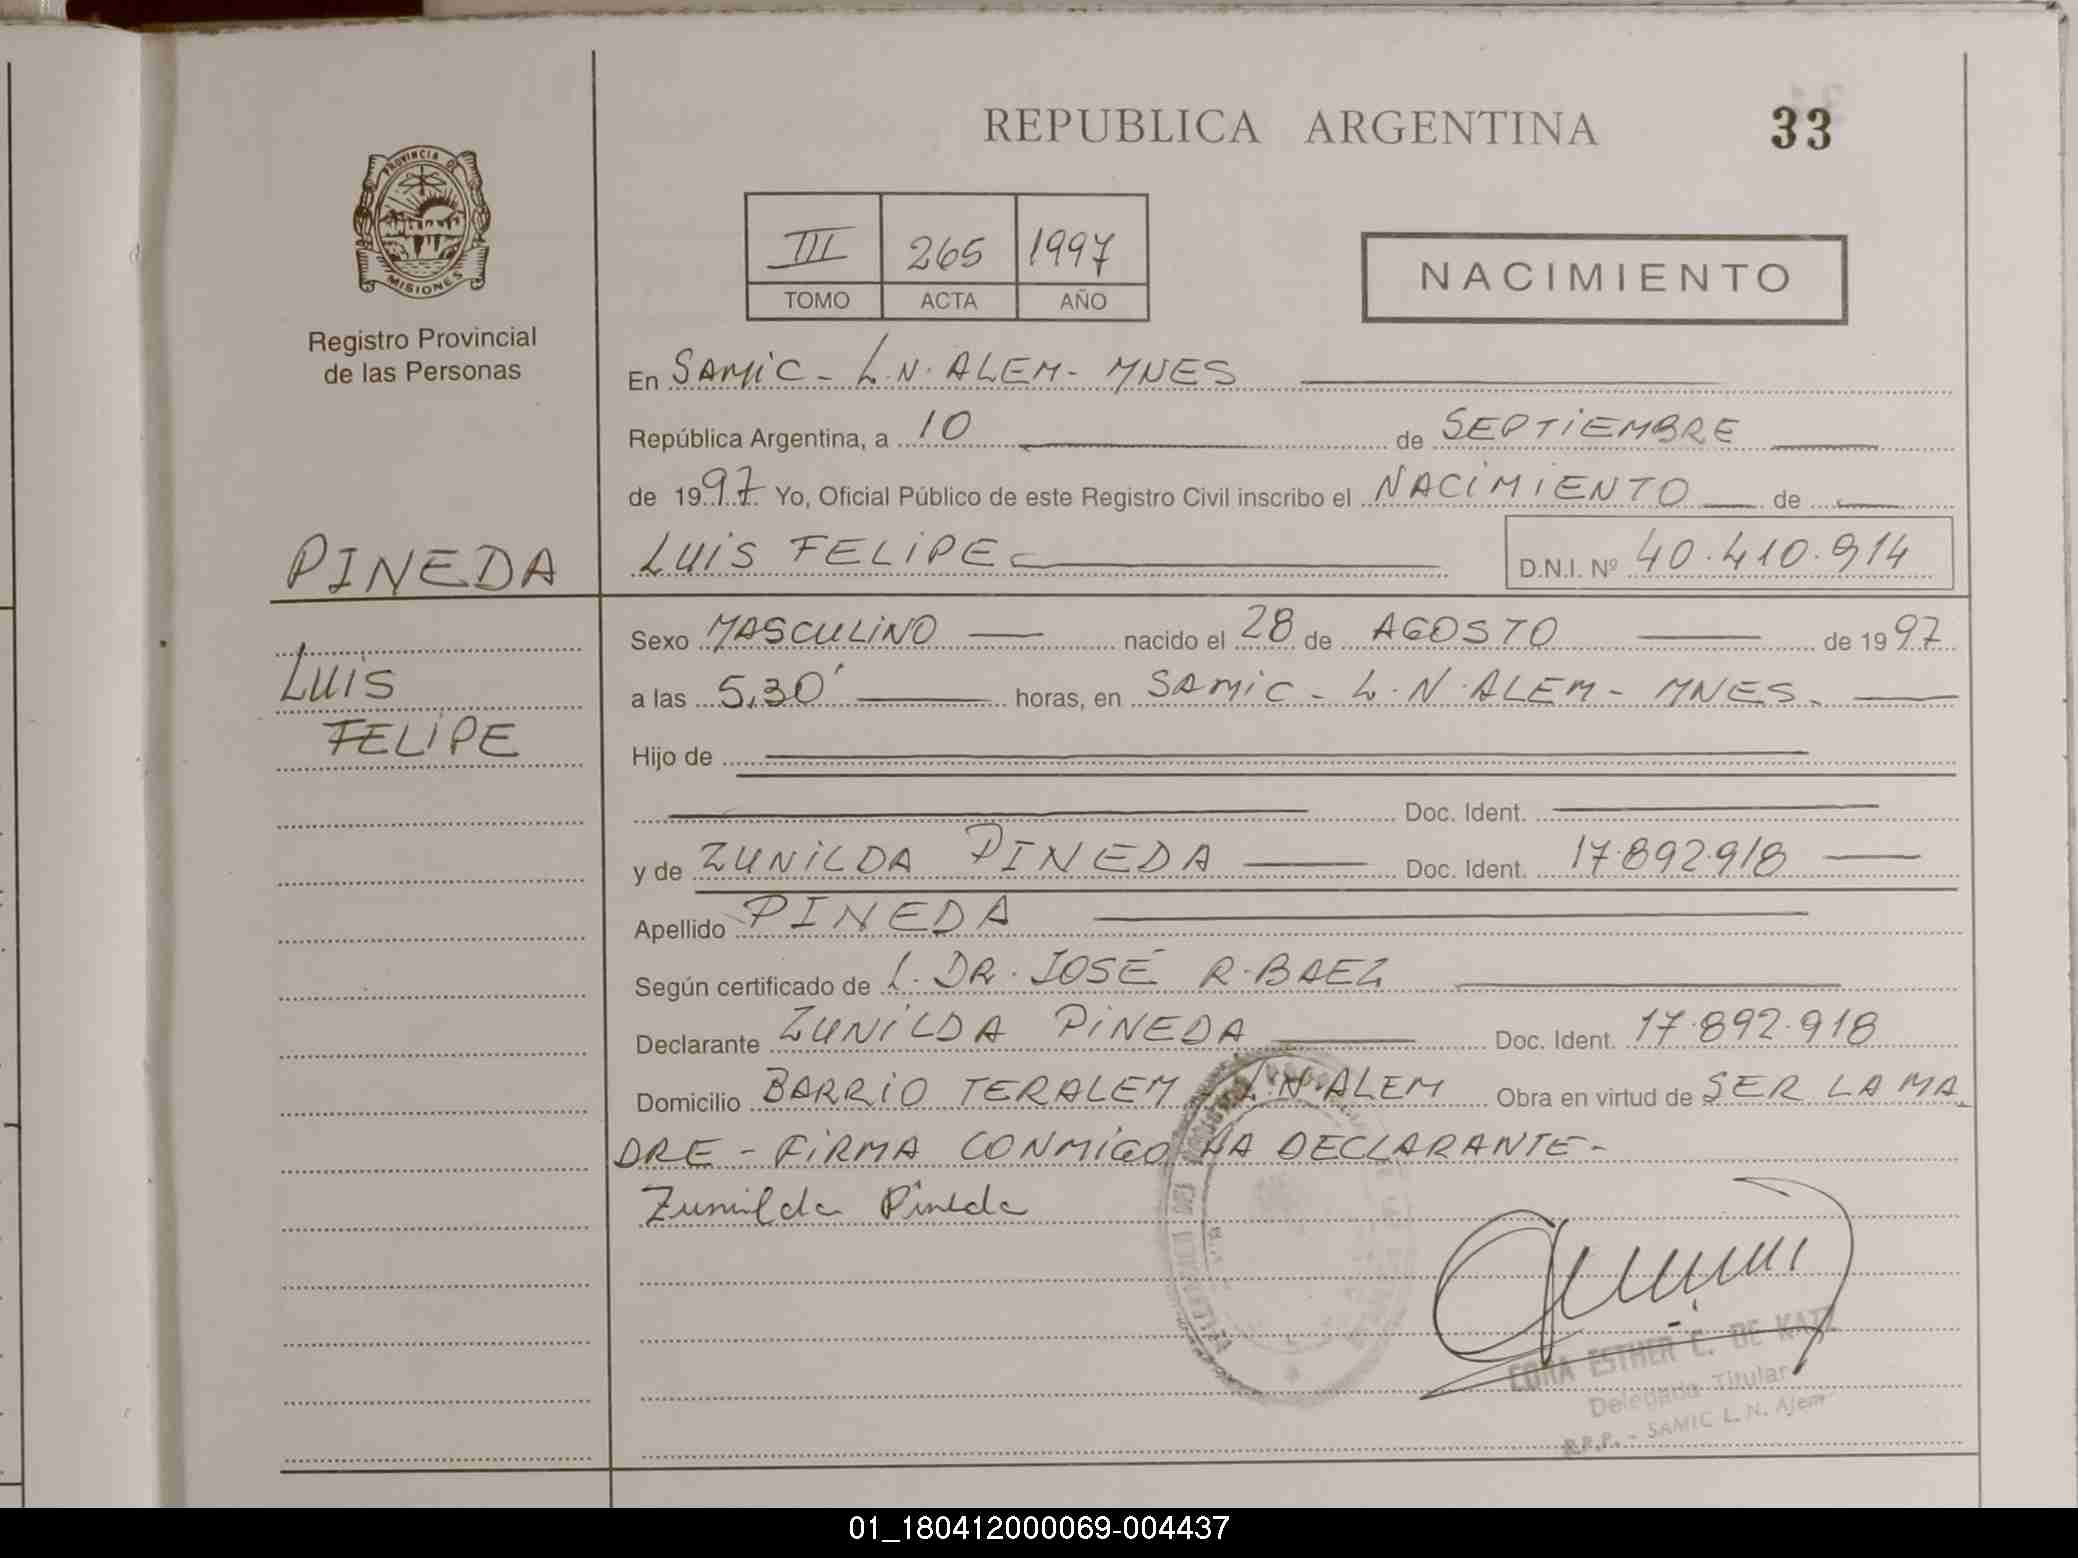 REPUBLICA ARGENTINA 33
PROVINCIA DE
MISIONES
Registro Provincial
de las Personas
III 265 1997
TOMO ACTA AÑO
NACIMIENTO
En SAMIC - L.N. ALEM - MNES
República Argentina, a 10 de SEPTIEMBRE
de 1997 Yo, Oficial Público de este Registro Civil inscribo el NACIMIENTO de
LUIS FELIPE D.N.I. Nº 40.410.914
PINEDA
LUIS
FELIPE
Sexo MASCULINO nacido el 28 de AGOSTO de 1997
a las 5,30' horas, en SAMIC - L.N. ALEM - MNES.
Hijo de
Doc. Ident.
y de ZUNILDA PINEDA Doc. Ident. 17.892.918
Apellido PINEDA
Según certificado de L. DR. JOSÉ R. BAEZ
Declarante ZUNILDA PINEDA Doc. Ident. 17.892.918
Domicilio BARRIO TERALEM - L.N. ALEM Obra en virtud de SER LA MA
DRE - FIRMA CONMIGO LA DECLARANTE -
Zunilda Pineda
ESTHER C. DE KATZ
Delegada Titular
R.P.P. - SAMIC L. N. Alem
01_180412000069-004437